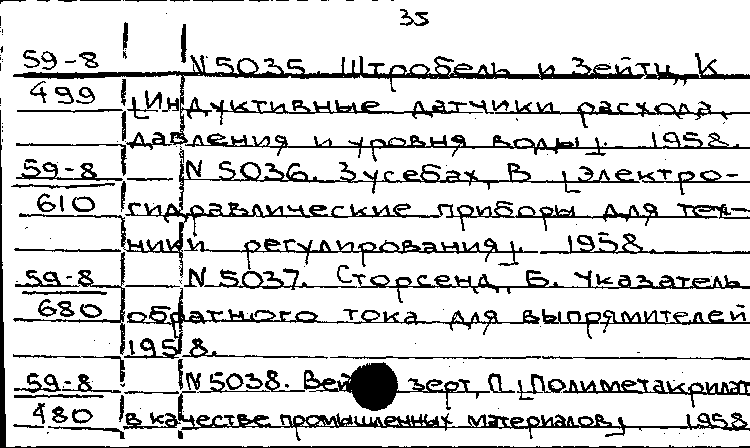 35
59-8 N 5035. Штробель и Зейтц, К
499 [Индуктивные датчики расхода,
давления и уровня воды]. 1958.
59-8 N 5036. Зусебах, В [Электро-
610 гидравлические приборы для тех-
ники регулирования]. 1958.
59-8 N 5037. Сторсенд, Б. Указатель
680 обратного тока для выпрямителей
1958.
59-8 N 5038. зерт, П. [Полиметакрилат
480 в качестве промышленных материалов] 1958